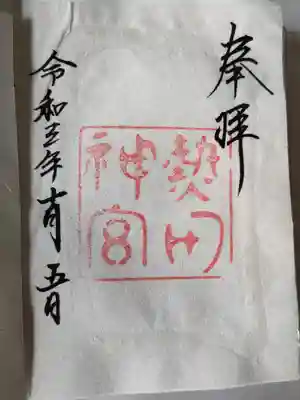 奉拝
熱田
神宮
令和三年十一月五日